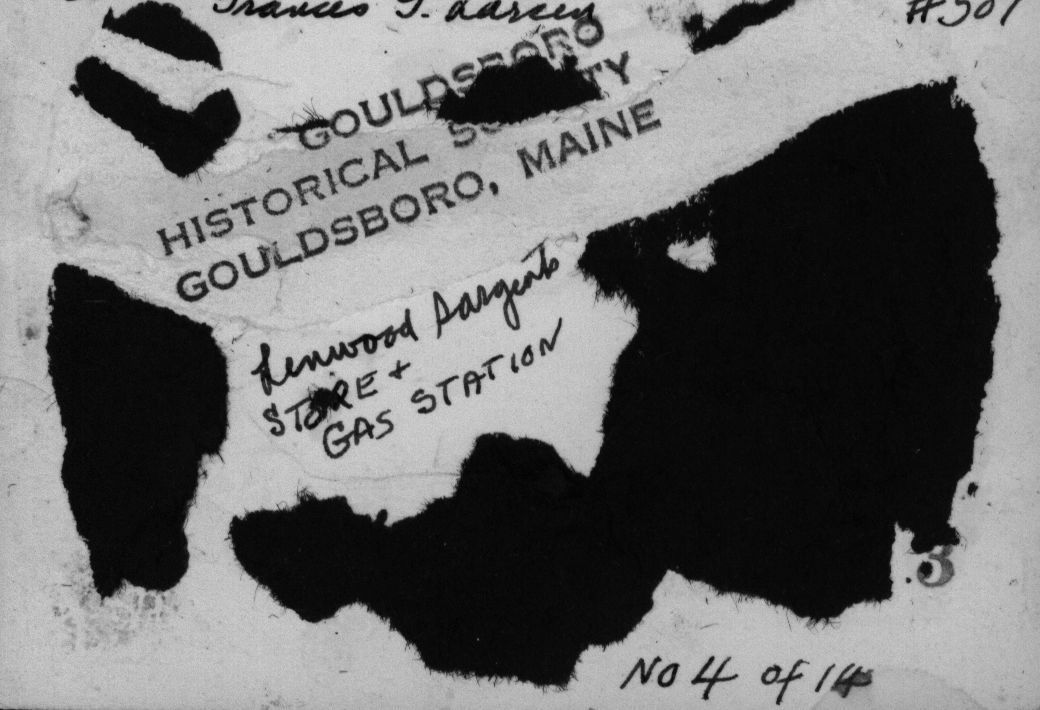 Frances T. Larsen #507
GOULDSBORO
HISTORICAL S TY
GOULDSBORO, MAINE
Lenwood Sargents
STORE +
GAS STATION
.3
NO 4 of 14